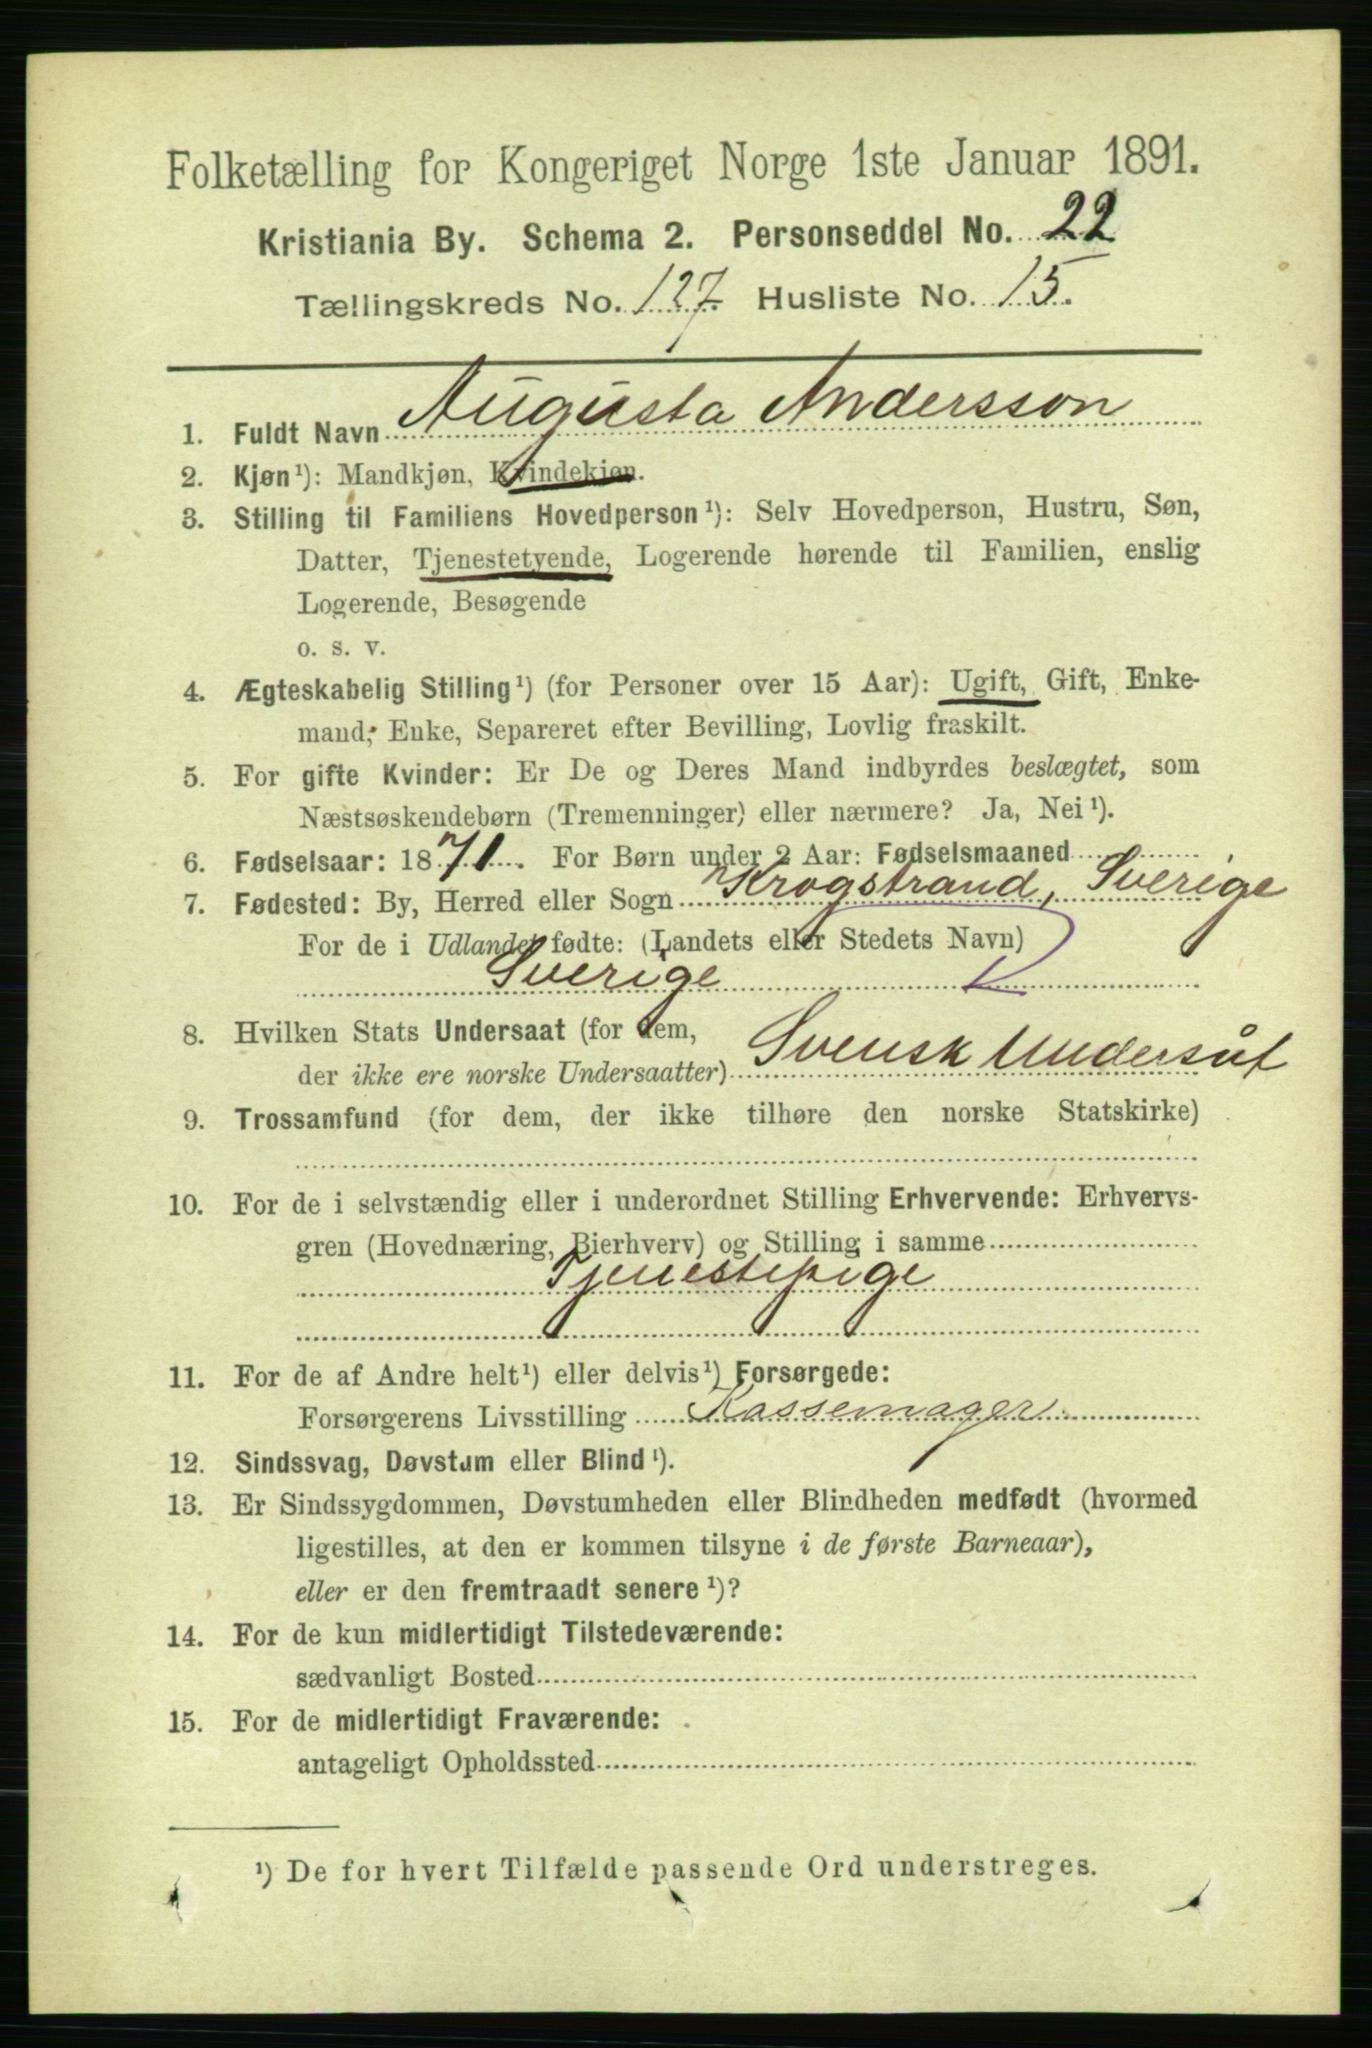 Folketælling for Kongeriget Norge 1ste Januar 1891.
Kristiania By. Schema 2. Personseddel No. 22
Tællingskreds No. 127 Husliste No. 15.
1. Fuldt Navn Augusta Andersson
2. Kjøn¹): Mandkjøn, Kvindekjøn.
3. Stilling til Familiens Hovedperson¹): Selv Hovedperson, Hustru, Søn,
Datter, Tjenestetyende, Logerende hørende til Familien, enslig
Logerende, Besøgende
o. s. v.
4. Ægteskabelig Stilling¹) (for Personer over 15 Aar): Ugift, Gift, Enke-
mand, Enke, Separeret efter Bevilling, Lovlig fraskilt.
5. For gifte Kvinder: Er De og Deres Mand indbyrdes beslægtet, som
Næstsøskendebørn (Tremenninger) eller nærmere? Ja, Nei¹).
6. Fødselsaar: 1871. For Børn under 2 Aar: Fødselsmaaned
7. Fødested: By, Herred eller Sogn Krogstrand, Sverige
For de i Udlandet fødte: (Landets eller Stedets Navn)
Sverige
8. Hvilken Stats Undersaat (for dem,
der ikke ere norske Undersaatter) Svensk Undersåt
9. Trossamfund (for dem, der ikke tilhøre den norske Statskirke)
10. For de i selvstændig eller i underordnet Stilling Erhvervende: Erhvervs-
gren (Hovednæring, Bierhverv) og Stilling i samme
Tjenestepige
11. For de af Andre helt¹) eller delvis¹) Forsørgede:
Forsørgerens Livsstilling Kassemager
12. Sindssvag, Døvstum eller Blind¹).
13. Er Sindssygdommen, Døvstumheden eller Blindheden medfødt (hvormed
ligestilles, at den er kommen tilsyne i de første Barneaar),
eller er den fremtraadt senere¹)?
14. For de kun midlertidigt Tilstedeværende:
sædvanligt Bosted
15. For de midlertidigt Fraværende:
antageligt Opholdssted
¹) De for hvert Tilfælde passende Ord understreges.